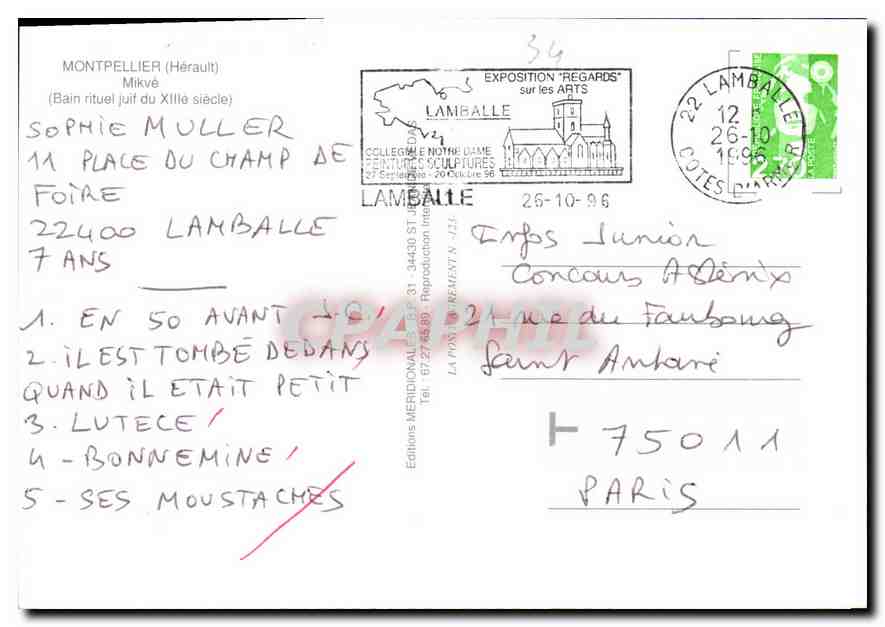 34
MONTPELLIER (Hérault)
Mikvé
(Bain rituel juif du XIIIè siècle)
SOPHIE MULLER
11 PLACE DU CHAMP DE
FOIRE
22400 LAMBALLE
7 ANS
1. EN 50 AVANT J.C
2. iL EST TOMBÉ DEDANS
QUAND iL ETAIT PETIT
3. LUTECE
4 - BONNEMINE
5 - SES MOUSTACHES
EXPOSITION "REGARDS"
sur les ARTS
LAMBALLE
COLLEGIALE NOTRE DAME
PEINTURES SCULPTURES
27 Septembre - 20 Octobre 96
LAMBALLE
26-10-96
22 LAMBALLE
12
26-10
1996
COTES D'ARMOR
Editions MERIDIONALES - B.P. 31 - 34430 ST JEAN DE VEDAS
Tél. : 67.27.65.89 - Reproduction
CPAPHIL
Infos Junior
Concours Astérix
21 rue du Faubourg
Saint Antoine
75011
PARIS